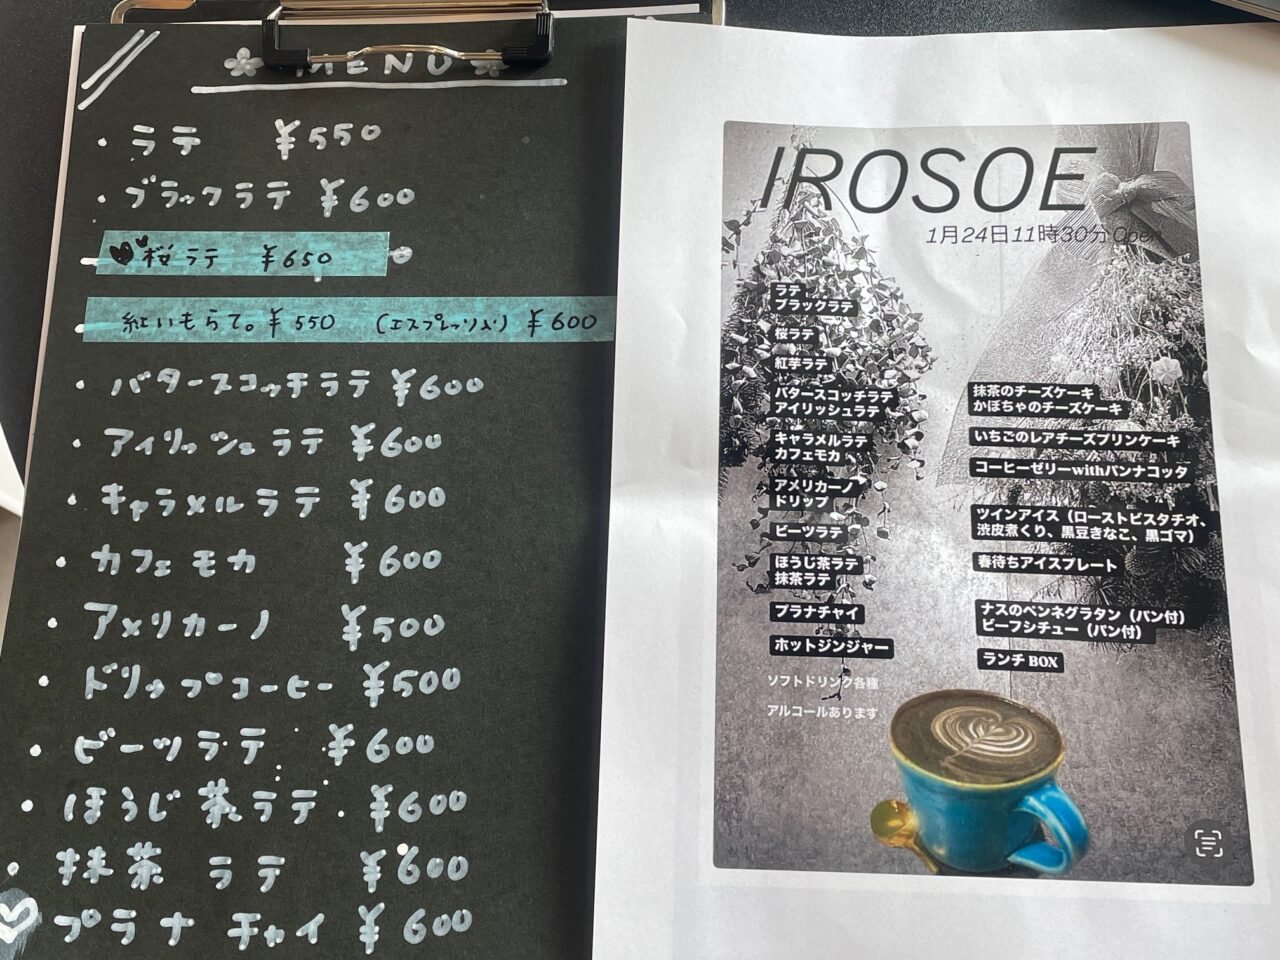 MENU
・ラテ ￥550
・ブラックラテ ￥600
桜ラテ ￥650
紅いもらて。￥550 (エスプレッソ入り) ￥600
・バタースコッチラテ ￥600
・アイリッシュラテ ￥600
・キャラメルラテ ￥600
・カフェモカ ￥600
・アメリカーノ ￥500
・ドリップコーヒー ￥500
・ビーツラテ ￥600
・ほうじ茶ラテ ￥600
・抹茶ラテ ￥600
プラナチャイ ￥600
IROSOE
1月24日11時30分Open
ラテ
ブラックラテ
桜ラテ
紅芋ラテ
バタースコッチラテ
アイリッシュラテ
キャラメルラテ
カフェモカ
アメリカーノ
ドリップ
ビーツラテ
ほうじ茶ラテ
抹茶ラテ
プラナチャイ
ホットジンジャー
ソフトドリンク各種
アルコールあります
抹茶のチーズケーキ
かぼちゃのチーズケーキ
いちごのレアチーズプリンケーキ
コーヒーゼリーwithパンナコッタ
ツインアイス（ローストピスタチオ、
渋皮煮くり、黒豆きなこ、黒ゴマ）
春待ちアイスプレート
ナスのペンネグラタン（パン付）
ビーフシチュー（パン付）
ランチBOX